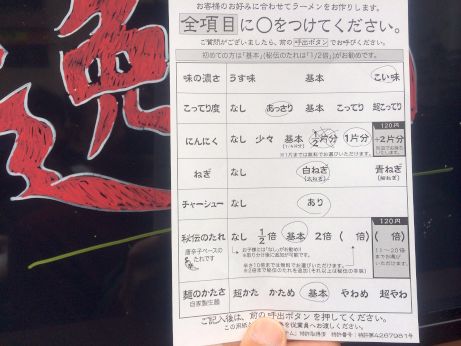 お客様のお好みに合わせてラーメンをお作りします。
全項目に○をつけてください。
ご質問がございましたら、前の呼出ボタンでお呼びください。
初めての方は「基本」(秘伝のたれは「1/2倍」)がお勧めです。
味の濃さ うす味 基本 こい味
こってり度 なし あっさり 基本 こってり 超こってり
にんにく なし 少々 基本 1/2片分 1片分
120円
+2片分
※1片までは無料でお選びいただけます。
ねぎ なし 白ねぎ 青ねぎ
チャーシュー なし あり
120円
秘伝のたれ なし 1/2倍 基本 2倍 ( 倍) ( 倍)
唐辛子ベースの
たれです
お子様には「なし」がお勧め!
※取り分け後に追加が可能です。
※10倍までは無料でお選びいただけます。
11〜20倍
までお選び
いただけます。
麺のかたさ 超かた かため 基本 やわめ 超やわ
自家製生麺
ご記入後は、前の呼出ボタンを押してください。
特許番号:特許第4267981号